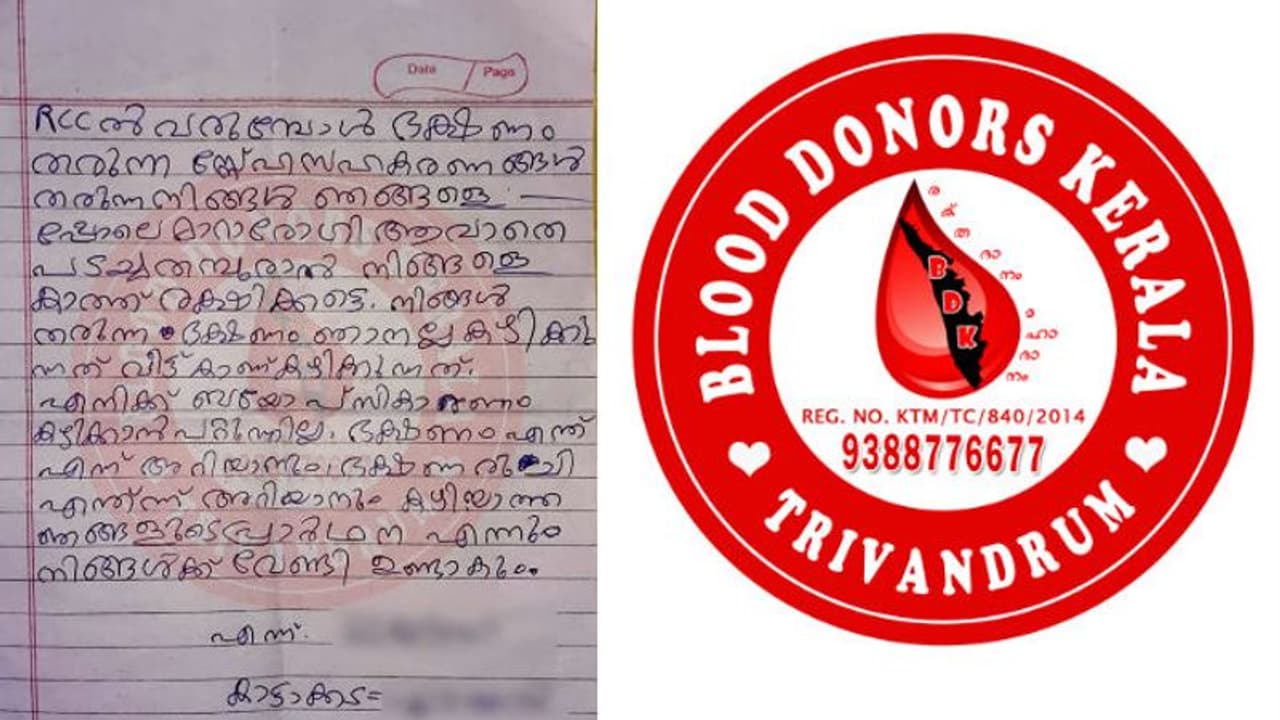 Date / Page
RCC ൽ വരുമ്പോൾ ഭക്ഷണം
തരുന്ന സ്നേഹസഹകരണങ്ങൾ
തരുന്ന നിങ്ങൾ ഞങ്ങളെ —
പ്പോലെ മാറാരോഗി ആവാതെ
പടച്ചതമ്പുരാൻ നിങ്ങളെ
കാത്ത് രക്ഷിക്കട്ടെ. നിങ്ങൾ
തരുന്ന ഭക്ഷണം ഞാനല്ല കഴിക്കു
ന്നത് വീട്ട് കാണ് കഴിക്കുന്നത്.
എനിക്ക് ബയോപ്സികാരണം
കഴിക്കാൻ പറ്റുന്നില്ല. ഭക്ഷണം എന്ത്
എന്ന് അറിയാനും ഭക്ഷണ രുചി
എന്ത്ന്ന് അറിയാനും കഴിയാത്ത
ഞങ്ങളുടെ പ്രാർഥന എന്നും
നിങ്ങൾക്ക് വേണ്ടി ഉണ്ടാകും.
എന്ന്.
കാട്ടാക്കട=
BLOOD DONORS KERALA
രക്തദാനം മഹാദാനം
B
D
K
REG. NO. KTM/TC/840/2014
9388776677
TRIVANDRUM